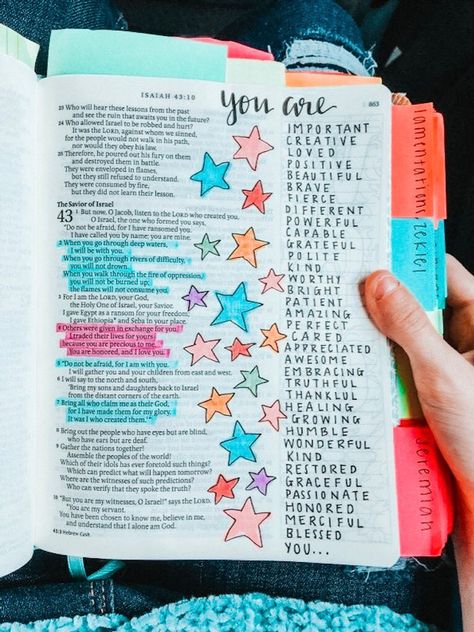 ISAIAH 43:10
863
23 Who will hear these lessons from the past
and see the ruin that awaits you in the future?
24 Who allowed Israel to be robbed and hurt?
It was the LORD, against whom we sinned,
for the people would not walk in his path,
nor would they obey his law.
25 Therefore, he poured out his fury on them
and destroyed them in battle.
They were enveloped in flames,
but they still refused to understand.
They were consumed by fire,
but they did not learn their lesson.
The Savior of Israel
43 1 But now, O Jacob, listen to the LORD who created you.
O Israel, the one who formed you says,
"Do not be afraid, for I have ransomed you.
I have called you by name; you are mine.
2 When you go through deep waters,
I will be with you.
When you go through rivers of difficulty,
you will not drown.
When you walk through the fire of oppression,
you will not be burned up;
the flames will not consume you.
3 For I am the LORD, your God,
the Holy One of Israel, your Savior.
I gave Egypt as a ransom for your freedom;
I gave Ethiopia* and Seba in your place.
4 Others were given in exchange for you.
I traded their lives for yours
because you are precious to me.
You are honored, and I love you.
5 "Do not be afraid, for I am with you.
I will gather you and your children from east and west.
6 I will say to the north and south,
'Bring my sons and daughters back to Israel
from the distant corners of the earth.
7 Bring all who claim me as their God,
for I have made them for my glory.
It was I who created them.'"
8 Bring out the people who have eyes but are blind,
who have ears but are deaf.
9 Gather the nations together!
Assemble the peoples of the world!
Which of their idols has ever foretold such things?
Which can predict what will happen tomorrow?
Where are the witnesses of such predictions?
Who can verify that they spoke the truth?
10 "But you are my witnesses, O Israel!" says the LORD.
"You are my servant.
You have been chosen to know me, believe in me,
and understand that I alone am God.
43:3 Hebrew Cush.
you are
IMPORTANT
CREATIVE
LOVED
POSITIVE
BEAUTIFUL
BRAVE
FIERCE
DIFFERENT
POWERFUL
CAPABLE
GRATEFUL
POLITE
KIND
WORTHY
BRIGHT
PATIENT
AMAZING
PERFECT
CARED
APPRECIATED
AWESOME
EMBRACING
TRUTHFUL
THANKLUL
HEALING
GROWING
HUMBLE
WONDERFUL
KIND
RESTORED
GRACEFUL
PASSIONATE
HONORED
MERCIFUL
BLESSED
YOU...
Lamentations
Ezekiel
Jeremiah